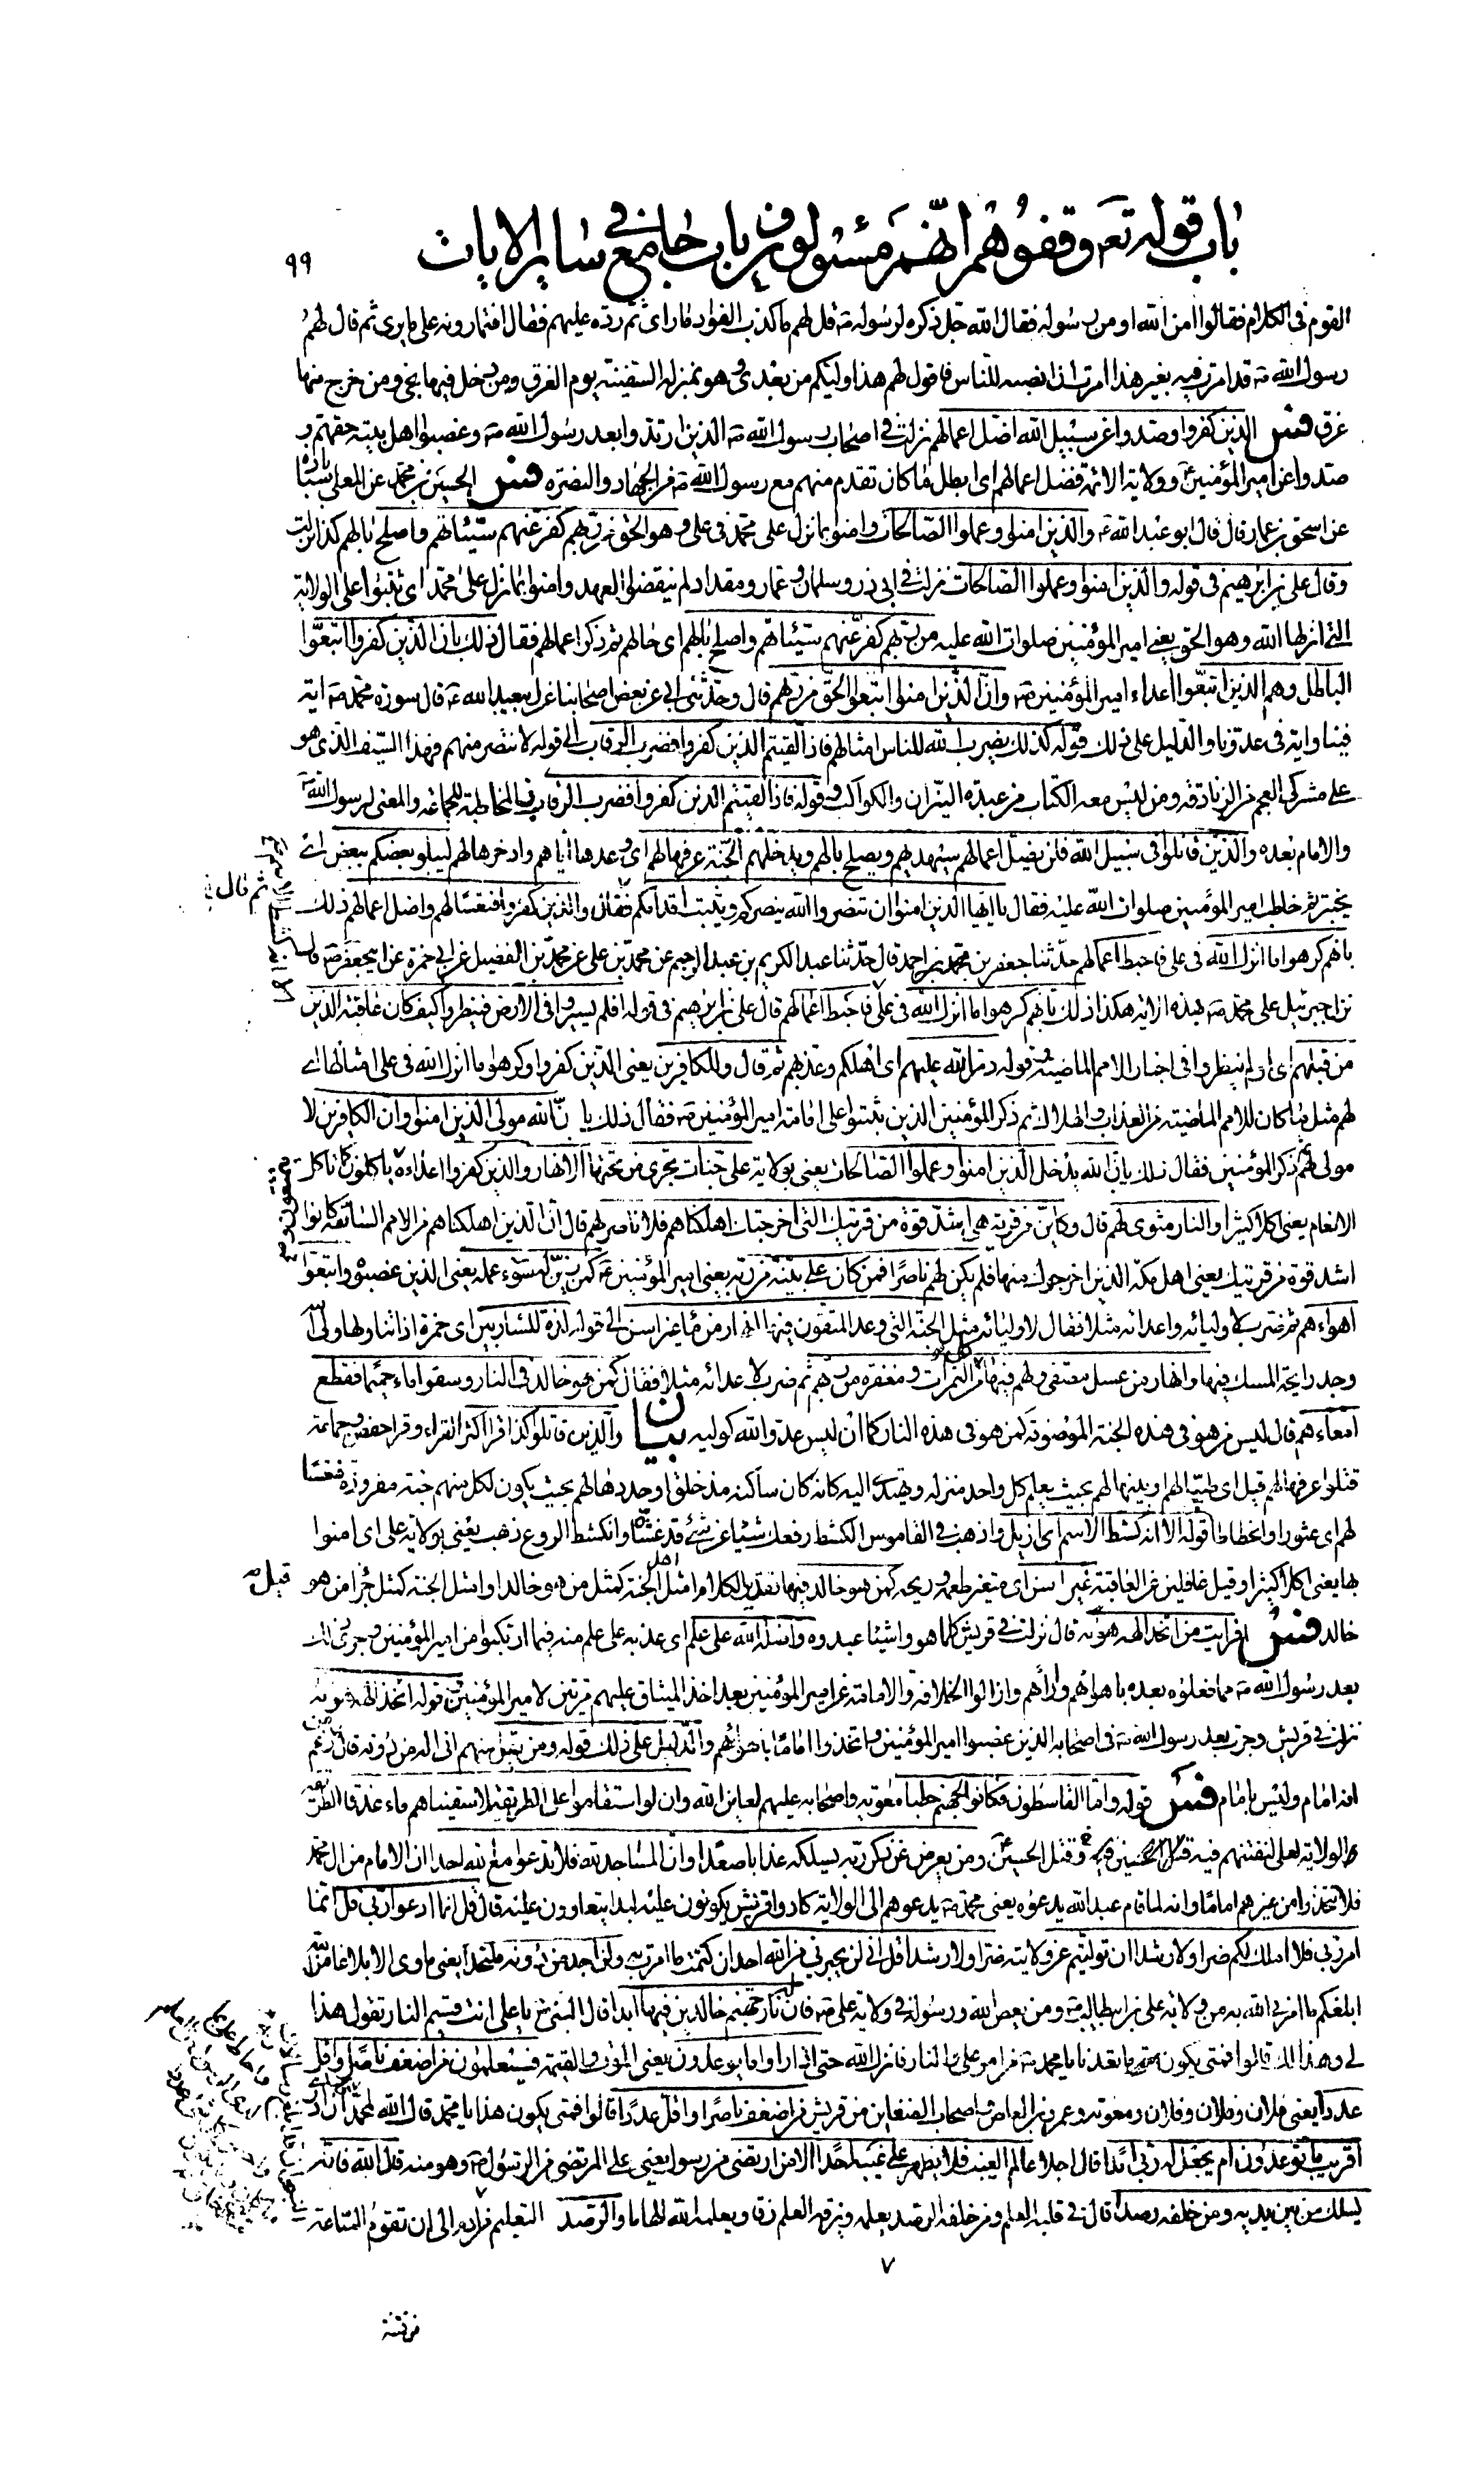 باب قوله تعه وقفوهم انّهم مسئولون باب جامع في ساير الايات
٩٩
القوم فى الكلام فقالوا امن الله او من رسوله فقال الله جل ذكره لرسوله ص قل لهم ما كذب الفؤاد ما راى ثم رد عليهم فقال افتمارونه على ما يرى ثم قال لهم
رسول الله ص قد امرت فيه بغير هذا امرت ان انصبه للناس فاقول لهم هذا وليكم من بعدى وهو بمنزلة السفينة يوم الغرق ومن دخل فيها نجى ومن خرج منها
غرق فس الذين كفروا وصدوا عن سبيل الله اضل اعمالهم نزلت فى اصحاب رسول الله ص الذين ارتدوا بعد رسول الله ص وغصبوا اهل بيته حقهم و
صدوا عن امير المؤمنين ع وولاية الائمة فضل اعمالهم اى ابطل ما كان تقدم منهم مع رسول الله ص من الجهاد والنصرة فس الحسين بن محمد عن المعلى باسناده
عن اسحق بن عمار قال قال ابو عبد الله ع والذين امنوا وعملوا الصالحات وامنوا بما نزل على محمد فى على وهو الحق من ربهم كفر عنهم سيئاتهم واصلح بالهم كذا نزلت
وقال على بن ابرهيم فى قوله والذين امنوا وعملوا الصالحات نزلت فى ابى ذر وسلمان وعمار ومقداد لم ينقضوا العهد وامنوا بما نزل على محمد اى ثبتوا على الولاية
التى انزلها الله وهو الحق يعنى امير المؤمنين صلوات الله عليه من ربهم كفر عنهم سيئاتهم واصلح بالهم اى حالهم ثم ذكر اعمالهم فقال ذلك بان الذين كفروا اتبعوا
الباطل وهم الذين اتبعوا اعداء امير المؤمنين ص وان الذين امنوا اتبعوا الحق من ربهم قال وحدثنى ابى عن بعض اصحابنا عن ابيعبد الله ع قال سورة محمد ص اية
فينا واية فى عدونا والدليل على ذلك قوله كذلك يضرب الله للناس امثالهم فاذا لقيتم الذين كفروا فضرب الرقاب الى قوله لانتصر منهم فهذا السيف الذى هو
على مشركى العجم من الزنادقة ومن ليس معه الكتاب من عبدة النيران والكواكب وقوله فاذا لقيتم الذين كفروا فضرب الرقاب فالمخاطبة للجماعة والمعنى لرسول الله ص
والامام بعده والذين قاتلوا فى سبيل الله فلن يضل اعمالهم سيهديهم ويصلح بالهم ويدخلهم الجنة عرفها لهم اى وعدها اياهم وادخرها لهم ليبلو بعضكم ببعض اى
يختبر ثم خاطب امير المؤمنين صلوات الله عليه فقال يا ايها الذين امنوا ان تنصروا الله ينصركم ويثبت اقدامكم فقال والذين كفروا فتعسا لهم واضل اعمالهم ذلك
ثم قال
بانهم كرهوا ما انزل الله فى على فاحبط اعمالهم حدثنا جعفر بن محمد بن احمد قال حدثنا عبد الكريم بن عبد الرحيم عن محمد بن على عن محمد بن الفضيل عن ابى حمزة عن ابيجعفر ص قال
نزل جبرئيل على محمد ص بهذه الاية هكذا ذلك بانهم كرهوا ما انزل الله فى على فاحبط اعمالهم قال على بن ابرهيم فى قوله افلم يسيروا فى الارض فينظروا كيف كان عاقبة الذين
من قبلهم اى اولم ينظروا فى اخبار الامم الماضية قوله دمر الله عليهم اى اهلكهم وعذبهم ثم قال وللكافرين يعنى الذين كفروا وكرهوا ما انزل الله فى على امثالها اى
لهم مثل ما كان للامم الماضية من العذاب والهلاك ثم ذكر المؤمنين الذين ثبتوا على امامة امير المؤمنين ص فقال ذلك بان الله مولى الذين امنوا وان الكافرين لا
مولى لهم ثم ذكر المؤمنين فقال ذلك بان الله يدخل الذين امنوا وعملوا الصالحات يعنى بولاية على جنات تجرى من تحتها الانهار والذين كفروا اعداءه ياكلون كما تاكل
يتمتعون و
الانعام يعنى اكلا كثيرا والنار مثوى لهم قال وكاين من قرية هى اشد قوة من قريتك التى اخرجتك اهلكناهم فلا ناصر لهم قال ان الذين اهلكناهم من الامم السالفة كانوا
اشد قوة من قريتك يعنى اهل مكة الذين اخرجوك منها فلم يكن لهم ناصرا فمن كان على بينة من ربه يعنى امير المؤمنين ع كمن زين له سوء عمله يعنى الذين غصبوه واتبعوا
اهواءهم ثم ضرب لاوليائه واعدائه مثلا فقال لاوليائه مثل الجنة التى وعد المتقون فيها انهار من ماء غير اسن الى قوله لذة للشاربين اى خمرة اذا تناولها ولى الله
وجد رايحة المسك فيها وانهار من عسل مصفى ولهم فيها من كل الثمرات ومغفرة من ربهم ثم ضرب لاعدائه مثلا فقال كمن هو خالد فى النار وسقوا ماء حميما فقطع
امعاءهم قال ليس من هو فى هذه الجنة الموصوفة كمن هو فى هذه النار كما ان ليس عدو الله كوليه بيان والذين قاتلوا كذا قرا اكثر القراء وقرا حفص وجماعة
قتلوا عرفها لهم قيل اى طيبها لهم او بينها لهم بحيث يعلم كل واحد منزله ويهتدى اليه كانه كان ساكنه مذ خلق او حددها لهم بحيث يكون لكل منهم جنة مفروزة فتعسا
لهم اى عثورا وانحطاطا قوله الا انه كشط الاسم اى ازيل واذهب فى القاموس الكشط رفعك شيئا عن شئ قد غشاه وانكشط الروع ذهب يعنى بولاية على اى امنوا
بها يعنى اكلا كثيرا وقيل غافلين عن العاقبة غير اسن اى متغير طعمه وريحه كمن هو خالد فيها تقدير الكلام امثل اهل الجنة كمثل من هو خالد او امثل الجنة كمثل جزا من هو
قيل
خالد فس افرايت من اتخذ الهه هويه قال نزلت فى قريش كلما هووا شيئا عبدوه واضله الله على علم اى عذبه على علم منه فيما ارتكبوا من امير المؤمنين وجرى ذلك
بعد رسول الله ص مما فعلوه بعده باهوائهم وارائهم وازالوا الخلافة والامامة عن امير المؤمنين بعد اخذ الميثاق عليهم مرتين لامير المؤمنين قوله اتخذ الهه هويه
نزلت فى قريش وجرت بعد رسول الله ص فى اصحابه الذين غصبوا امير المؤمنين واتخذوا اماما باهوائهم والدليل على ذلك قوله ومن يقل منهم انى اله من دونه قال من زعم
انه امام وليس بامام فس قوله واما القاسطون فكانوا لجهنم حطبا معوية واصحابه عليهم لعاين الله وان لو استقاموا على الطريقة لاسقيناهم ماء غدقا الطريقة
الولاية لعلى لنفتنهم فيه قتل الحسين وقتل الحسين ع ومن يعرض عن ذكر ربه يسلكه عذابا صعدا وان المساجد لله فلا تدعوا مع الله احدا ان الامام من ال محمد
فلا تتخذوا من غيرهم اماما وانه لما قام عبد الله يدعوه يعنى محمد ص يدعوهم الى الولاية كادوا قريش يكونون عليه لبدا يتعاوون عليه قال قل انما ادعوا ربى قل انما
امر ربى فلا املك لكم ضرا ولا رشدا ان توليتم عن ولايته ضرا ولا رشدا قل انى لن يجيرنى من الله احد ان كتمت ما امرت به ولن اجد من دونه ملتحدا يعنى ماوى الا بلاغا من الله
ابلغكم ما امرنى الله به من ولاية على بن ابيطالب ص ومن يعص الله ورسوله فى ولاية على ص فان له نار جهنم خالدين فيها ابدا قال النبى ص يا على انت قسيم النار تقول هذا
لى وهذا لك قالوا فمتى يكون ما تعدنا يا محمد ص من امر على والنار فانزل الله حتى اذا راوا ما يوعدون يعنى الموت والقيمة فسيعلمون من اضعف ناصرا واقل
عددا يعنى فلان وفلان وفلان ومعوية وعمرو بن العاص واصحاب الضغاين من قريش من اضعف ناصرا واقل عددا قالوا فمتى يكون هذا يا محمد قال الله لمحمد ان ادرى
اقريب ما توعدون ام يجعل له ربى امدا قال اجلا عالم الغيب فلا يظهر على غيبه احدا الا من ارتضى من رسول يعنى على المرتضى من الرسول ص وهو منه قال الله فانه
يسلك من بين يديه ومن خلفه رصدا قال فى قلبه العلم ومن خلفه الرصد يعلمه ويزقه العلم زقا ويعلمه الله الهاما والرصد التعليم من النبى الى ان تقوم الساعة
٧
من فتنة